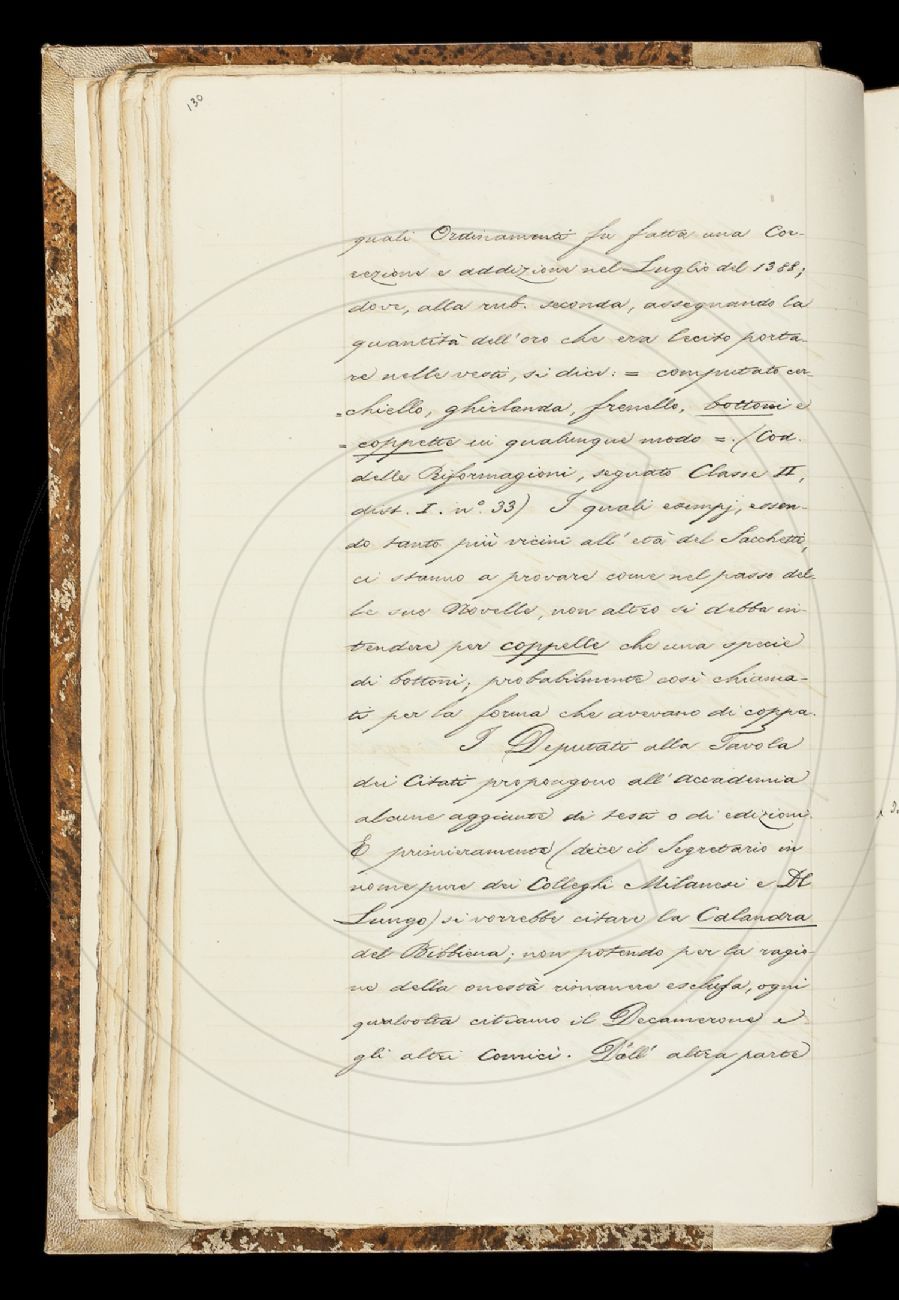 130
quali Ordinamenti fu fatta una Cor-
rezione e addizione nel Luglio del 1388;
dove, alla rub. seconda, assegnando la
quantità dell'oro che era lecito porta-
re nelle vesti, si dice: = computato cer-
=chiello, ghirlanda, frenello, bottoni e
= coppette in qualunque modo =. (Cod.
delle Riformagioni, segnato Classe II,
dist. I. n.° 33) I quali esempj, essen-
do tanto più vicini all'età del Sacchetti,
ci stanno a provare come nel passo del-
le sue Novelle, non altro si debba in-
tendere per coppelle che una specie
di bottoni; probabilmente così chiama-
ti per la forma che avevano di coppa.
I Deputati alla Tavola
dei Citati propongono all'Accademia
alcune aggiunte di testi o di edizioni.
E primieramente (dice il Segretario in
nome pure dei Colleghi Milanesi e Del
Lungo) si vorrebbe citare la Calandra
del Bibbiena; non potendo per la ragio-
ne della onestà rimanere esclusa, ogni
qualvolta citiamo il Decamerone e
gli altri Comici. Dall'altra parte